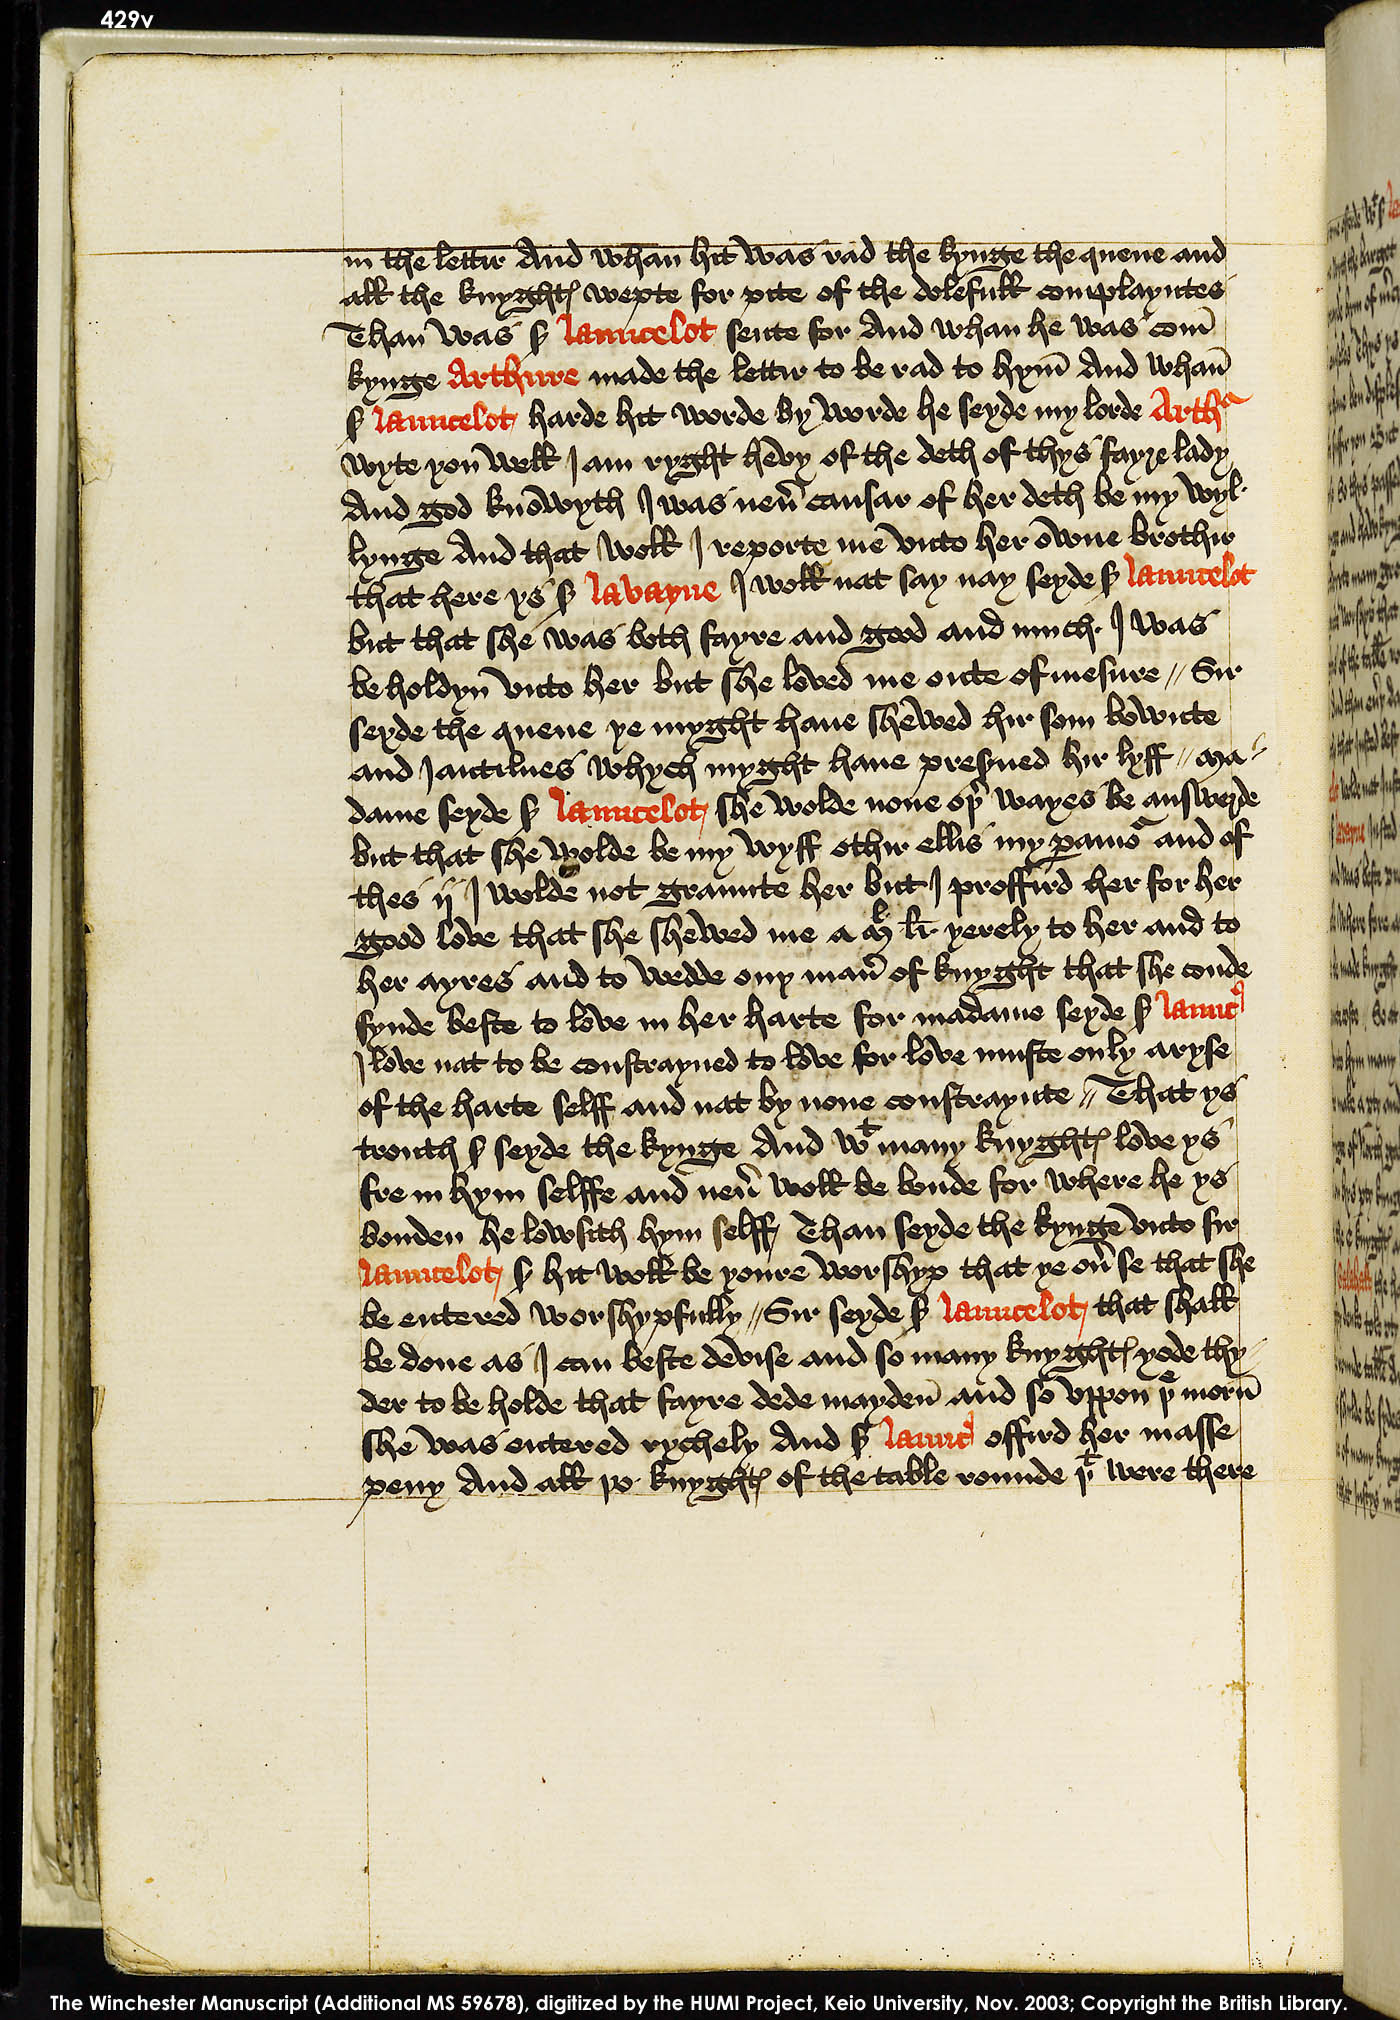 429v
in the lettir And whan hit was rad the kynge the quene and
all the knyghtes wepte for pite of the dolefull complayntes
Than was sir launcelot sente for And whan he was com̄
kynge Arthure made the lettir to be rad to hym̄ And whan̄
sir launcelot harde hit worde by worde he seyde my lorde Arthᵃ
wyte you well I am ryght hevy of the deth of thys fayre lady
And god knowyth I was neu̾ causar of her deth be my wyl-
lynge And that woll I reporte me vnto her owne brothir
that here ys sir lavayne I woll nat say nay seyde sir launcelot
but that she was both fayre and good and much. I was
be holdyn vnto her but she loved me oute of mesure // Sir
seyde the quene ye myght haue shewed hir som bownte
and Iantilnes whych myght haue preserued hir lyff // Ma-
dame seyde sir launcelot she wolde none oþ̾ wayes be answerde
but that she wolde be my wyff othir ellis my paramoᵘ and of
thes ij I wolde not graunte her but I proffird her for her
good love that she shewed me a Mˡ li. yerely to her and to
her ayres and to wedde ony man̄ of knyght that she coude
fynde beste to love in her harte for madame seyde sir launc̾
I love nat to be constrayned to love for love muste only aryse
of the harte selff and nat by none constraynte // That ys
trouth sir seyde the kynge And wᵗ many knyghtes love ys
fre in hym selffe and neu̾ woll be bonde for where he ys
bonden he lowsith hym selff Than seyde the kynge vnto sir
launcelot sir hit woll be youre worshyp that ye ou̾ se that she
be entered worshypfully // Sir seyde sir launcelot that shall
be done as I can beste devise and so many knyghtes yode thy-
der to be holde that fayre dede mayden̄ and so vppon þᵉ morn̄
she was entered rychely And sir launc̾ offird her masse
peny And all þo knyghtes of the table rounde þᵗ were there
The Winchester Manuscript (Additional MS 59678), digitized by the HUMI Project, Keio University, Nov. 2003; Copyright the British Library.